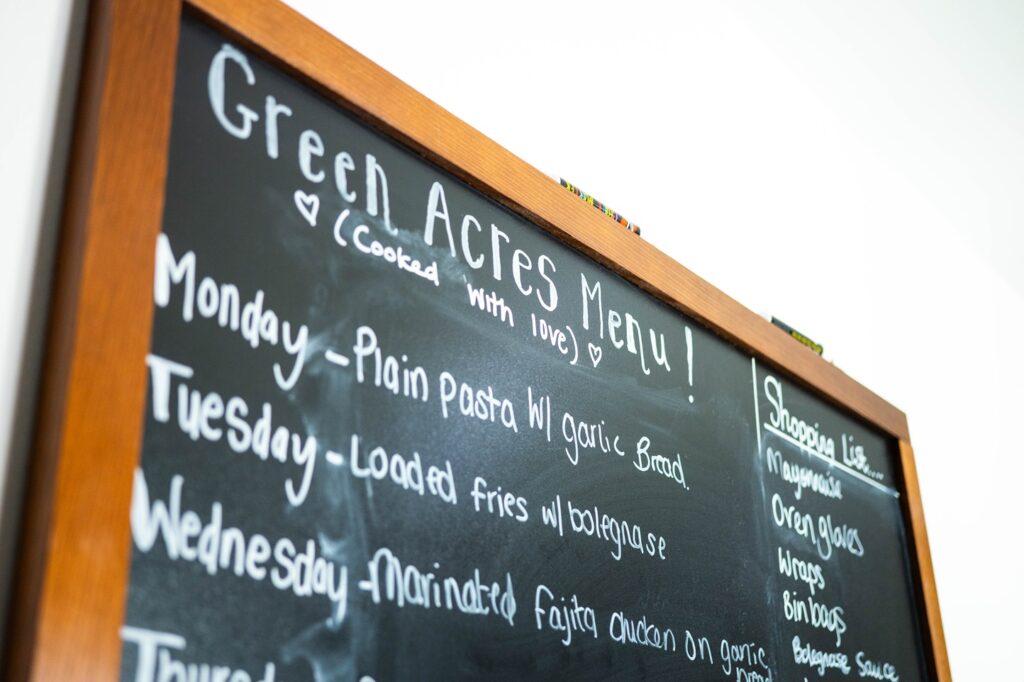 Green Acres Menu!
♡ (Cooked with love) ♡
Monday - Plain pasta w/ garlic Bread.
Tuesday - Loaded fries w/ bolegnase
Wednesday - Marinated fajita chicken on garlic
bread
Shopping List....
Mayonnaise
Oven gloves
Wraps
Bin bags
Bolegnase Sauce